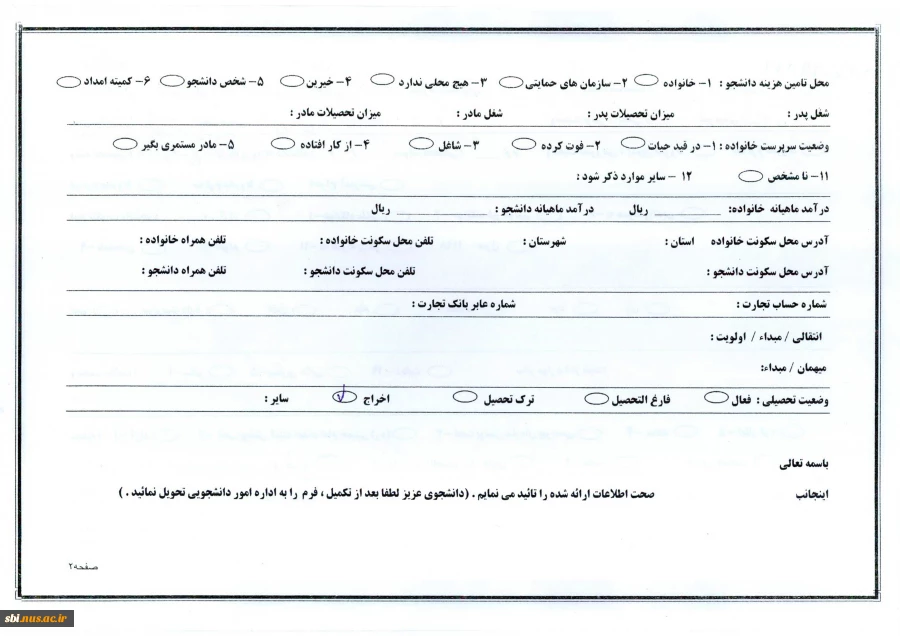 محل تامین هزینه دانشجو : ۱- خانواده ۲- سازمان های حمایتی ۳- هیچ محلی ندارد ۴- خیرین ۵- شخص دانشجو ۶- کمیته امداد
شغل پدر : میزان تحصیلات پدر : شغل مادر : میزان تحصیلات مادر :
وضعیت سرپرست خانواده : ۱- در قید حیات ۲- فوت کرده ۳- شاغل ۴- از کار افتاده ۵- مادر مستمری بگیر
۱۱- نا مشخص ۱۲ - سایر موارد ذکر شود :
درآمد ماهیانه خانواده: ریال درآمد ماهیانه دانشجو : ریال
آدرس محل سکونت خانواده استان : شهرستان : تلفن محل سکونت خانواده : تلفن همراه خانواده :
آدرس محل سکونت دانشجو : تلفن محل سکونت دانشجو : تلفن همراه دانشجو :
شماره حساب تجارت : شماره عابر بانک تجارت :
انتقالی / مبداء / اولویت :
میهمان / مبداء:
وضعیت تحصیلی : فعال فارغ التحصیل ترک تحصیل اخراج سایر :
باسمه تعالی
اینجانب صحت اطلاعات ارائه شده را تائید می نمایم . (دانشجوی عزیز لطفا بعد از تکمیل ، فرم را به اداره امور دانشجویی تحویل نمائید . )
صفحه۲
sbi.nus.ac.ir